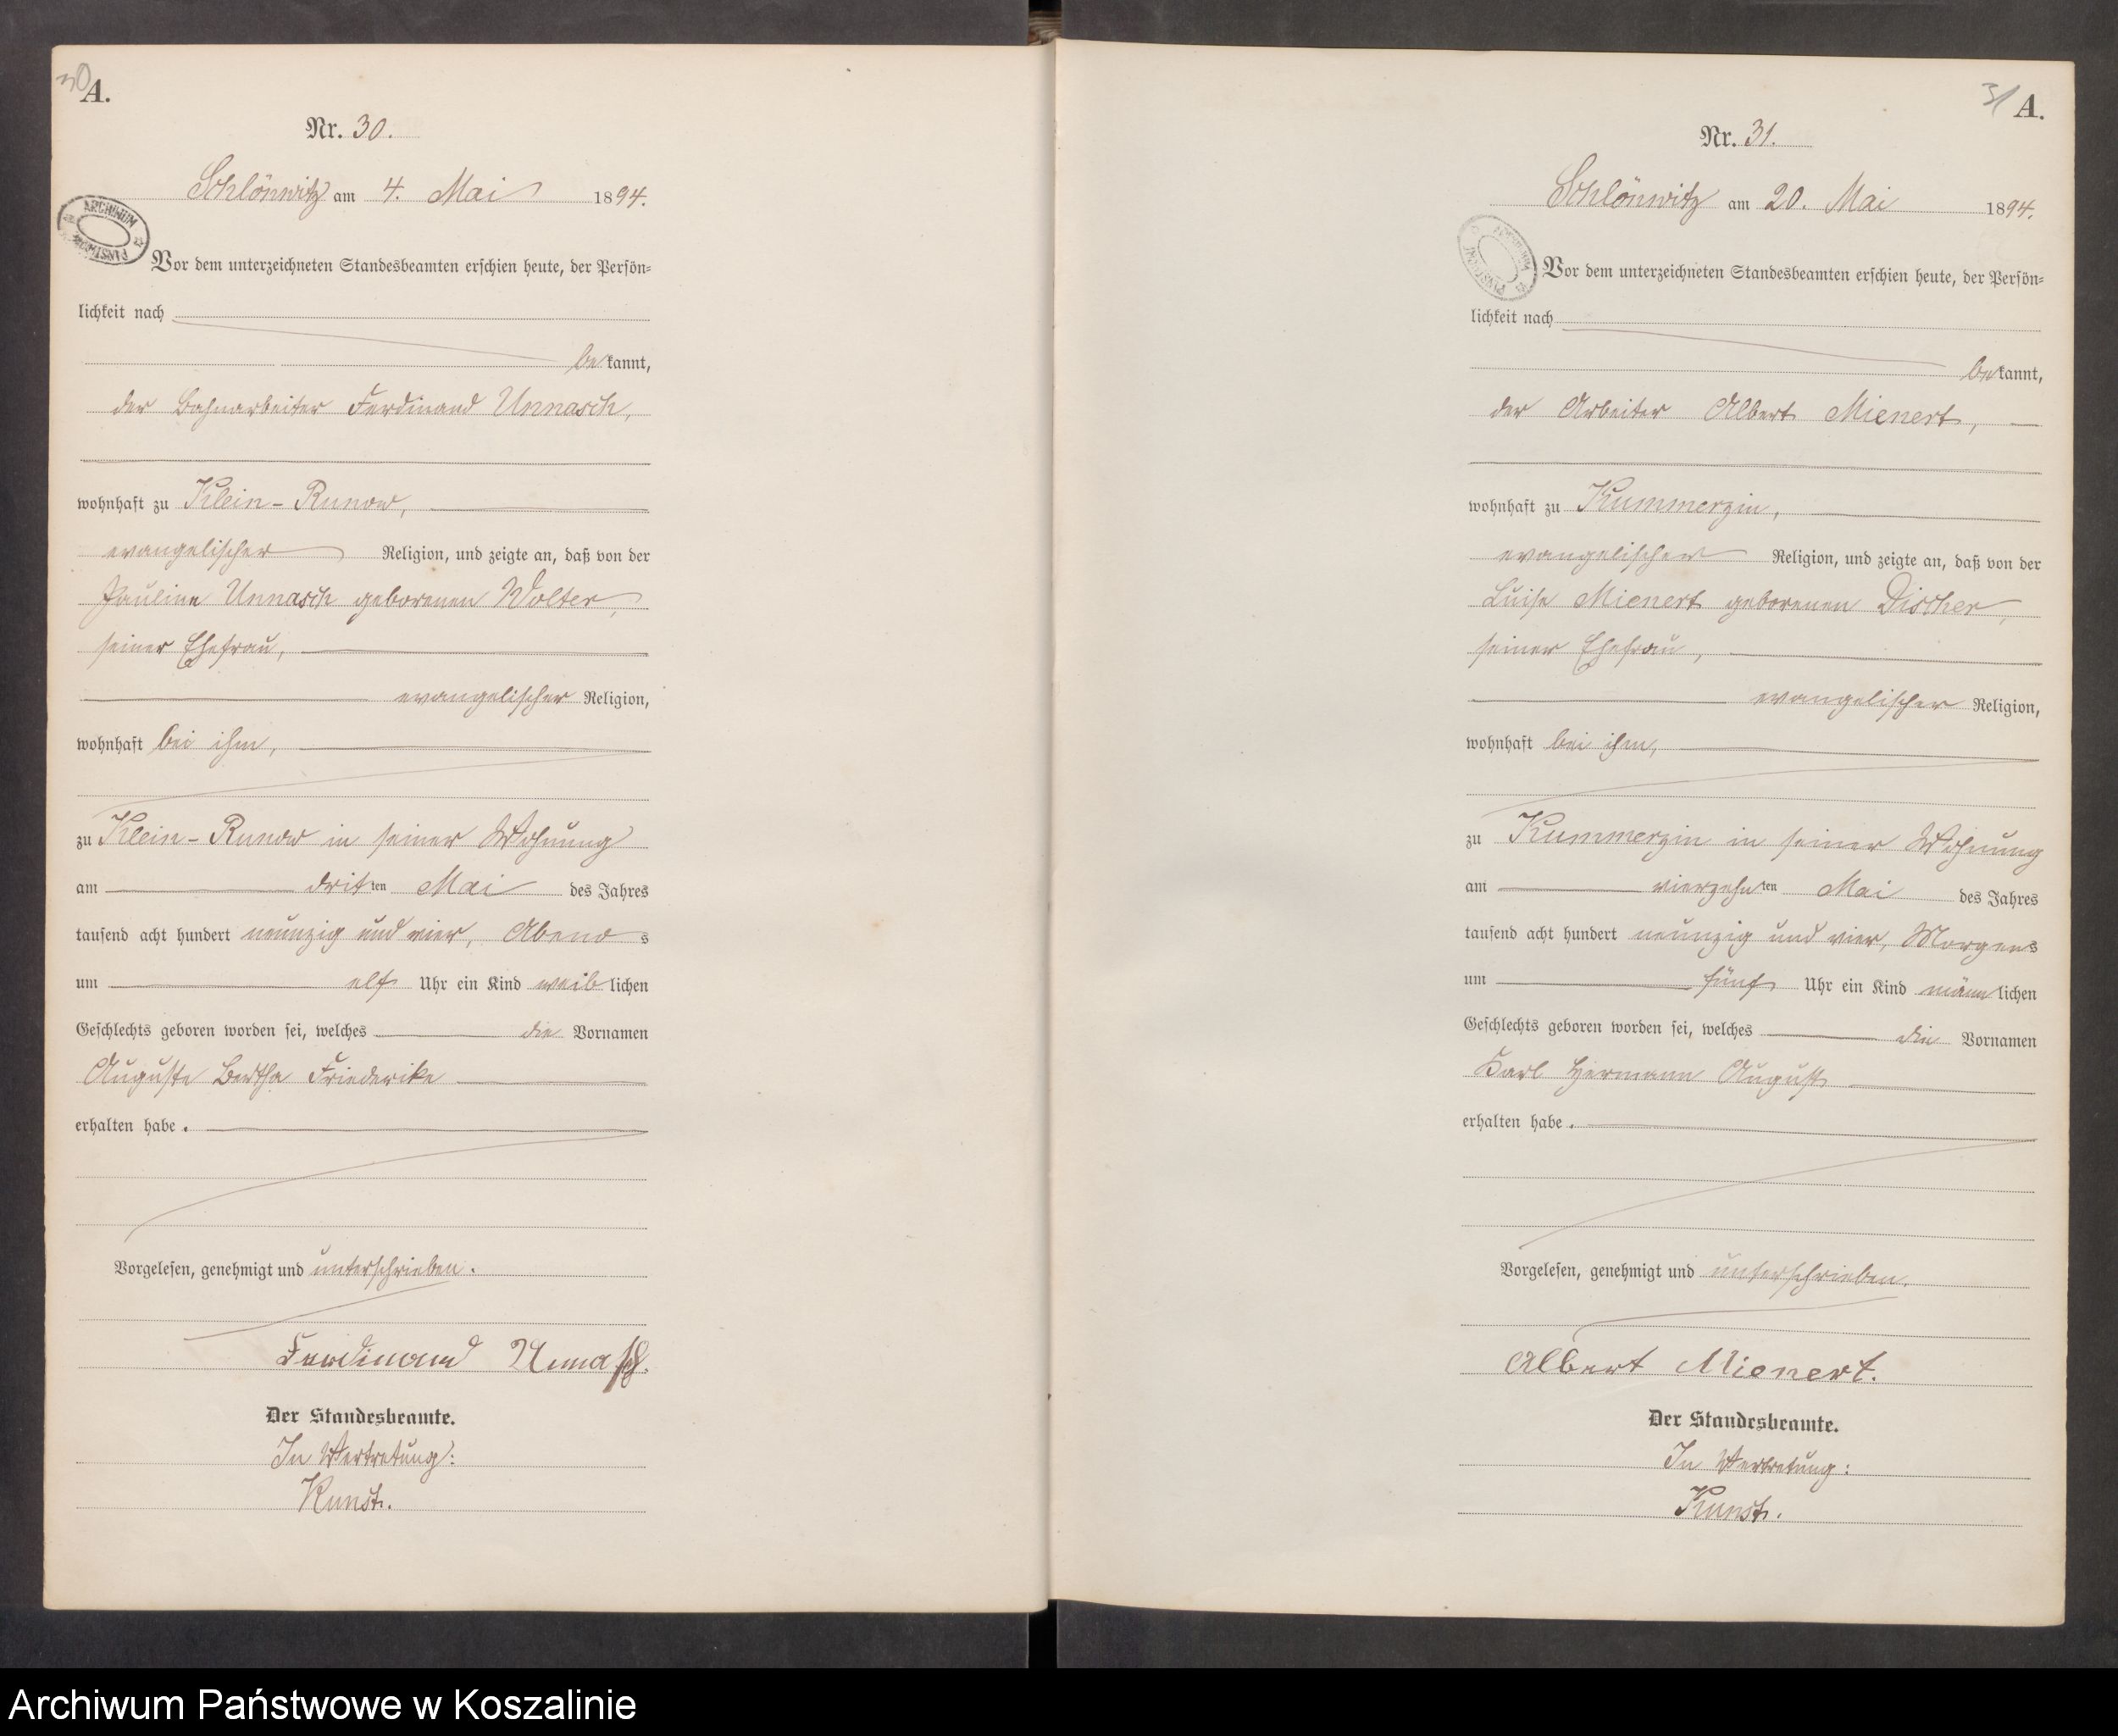 30
A.
Nr. 30.
Schlönwitz am 4. Mai 1894.
ARCHIWUM
Vor dem unterzeichneten Standesbeamten erschien heute, der Persön=
lichkeit nach
bekannt,
der Bahnarbeiter Ferdinand Unnasch,
wohnhaft zu Klein-Runow,
evangelischer Religion, und zeigte an, daß von der
Pauline Unnasch geborenen Wolter,
seiner Ehefrau,
evangelischer Religion,
wohnhaft bei ihm,
zu Klein-Runow in seiner Wohnung
am dritten Mai des Jahres
tausend acht hundert neunzig und vier, Abends
um elf Uhr ein Kind weiblichen
Geschlechts geboren worden sei, welches die Vornamen
Auguste Bertha Friederike
erhalten habe.
Vorgelesen, genehmigt und unterschrieben.
Ferdinand Unnasch.
Der Standesbeamte.
In Vertretung:
Kunst.
31
A.
Nr. 31.
Schlönwitz am 20. Mai 1894.
Vor dem unterzeichneten Standesbeamten erschien heute, der Persön=
lichkeit nach
bekannt,
der Arbeiter Albert Mienert,
wohnhaft zu Kummerzin,
evangelischer Religion, und zeigte an, daß von der
Luise Mienert geborenen Discher,
seiner Ehefrau,
evangelischer Religion,
wohnhaft bei ihm,
zu Kummerzin in seiner Wohnung
am vierzehnten Mai des Jahres
tausend acht hundert neunzig und vier, Morgens
um fünf Uhr ein Kind männlichen
Geschlechts geboren worden sei, welches die Vornamen
Karl Hermann August
erhalten habe.
Vorgelesen, genehmigt und unterschrieben.
Albert Mienert.
Der Standesbeamte.
In Vertretung:
Kunst.
Archiwum Państwowe w Koszalinie